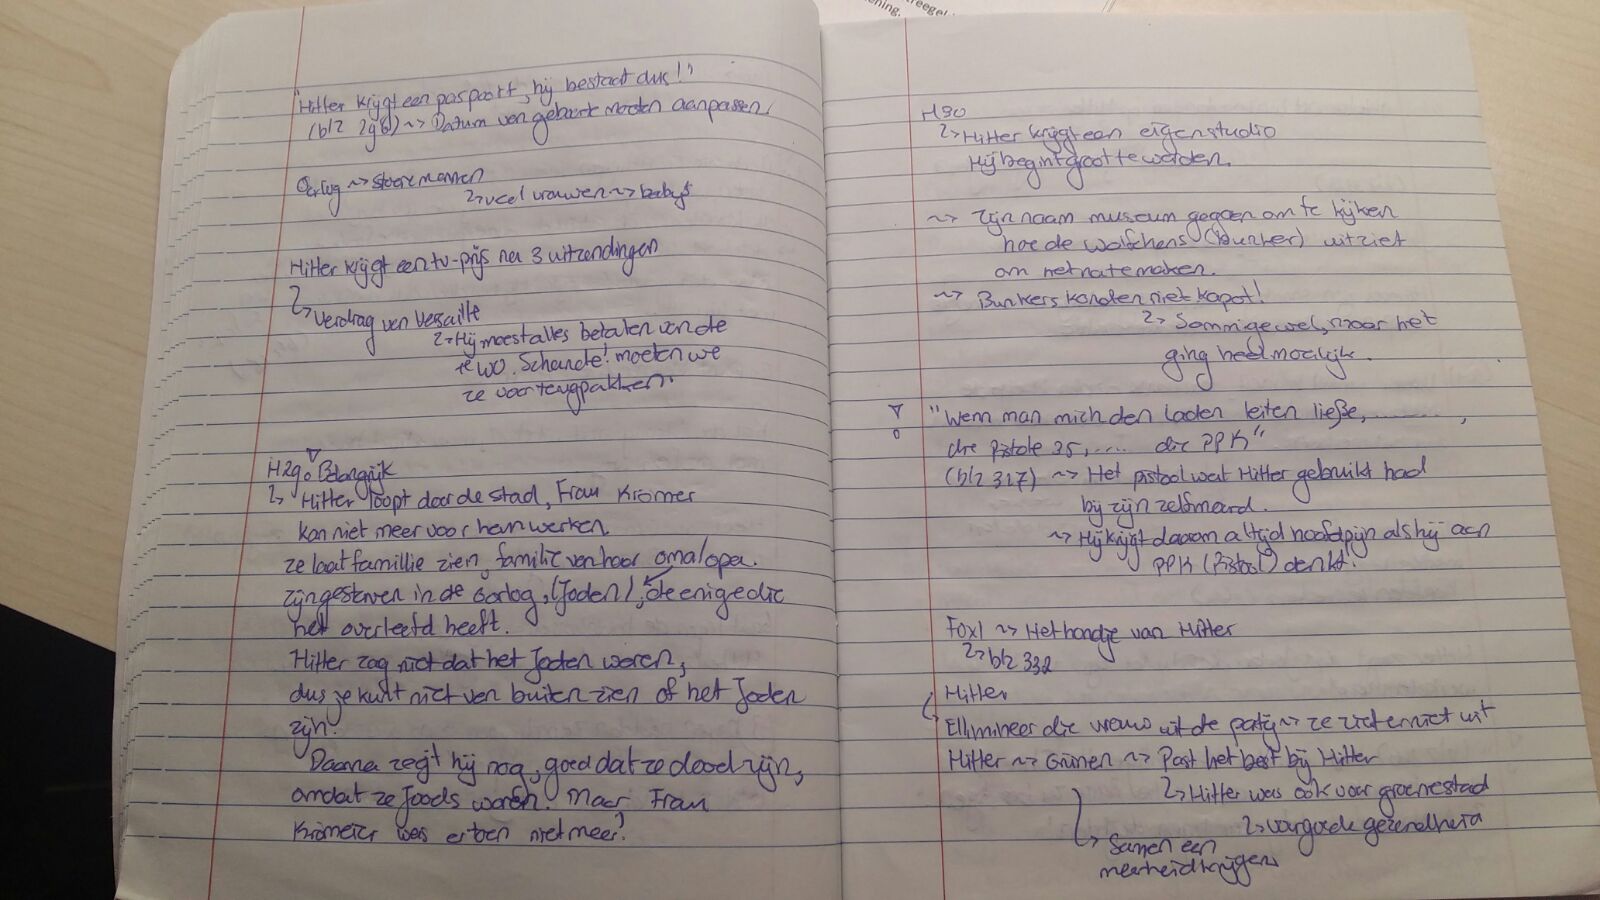 reegel
ening.
"Hitler krijgt een paspoort, hij bestaat dus!"
(blz 296) ~> Datum van geboorte moeten aanpassen.
Oorlog ~> stoere mannen
↳ veel vrouwen ~> baby's
Hitler krijgt een tv-prijs na 3 uitzendingen
↳ Verdrag van Versaille
↳ Hij moest alles betalen van de
1e WO. Schande! moeten we
ze voor terugpakken.
H29 Belangrijk
↳ Hitler loopt door de stad, Frau Krömer
kan niet meer voor hem werken.
ze laat famillie zien, familie van haar oma/opa.
zijn gestorven in de oorlog, (Joden), de enige die
het overleefd heeft.
Hitler zag niet dat het Joden waren,
dus je kunt niet van buiten zien of het Joden
zijn.
Daarna zegt hij nog, goed dat ze dood zijn,
omdat ze Joods waren. Maar Frau
Krömeier was er toen niet meer?
H30
↳ Hitler krijgt een eigen studio
Hij begint groot te worden.
~> Zijn naam museum gegaan om te kijken
hoe de wolfchens (bunker) uitziet
om het na te maken.
~> Bunkers konden niet kapot!
↳ Sommige wel, maar het
ging heel moeilijk.
"Wenn man mich den Laden leiten ließe, ..........,
die Pistole 35, ..... die PPK"
(blz 327) ~> Het pistool wat Hitler gebruikt had
bij zijn zelfmoord.
~> Hij krijgt daarom altijd hoofdpijn als hij aan
PPK (Pistool) denkt.
Foxl ~> Het hondje van Hitler
↳ blz 332
Hitler
Ellimineer die vrouw uit de partij ~> ze ziet er niet uit
Hitler ~> Grünen ~> Past het best bij Hitler
↳ Hitler was ook voor groene stad
↳ voor goede gezondheid
↳ Samen een
meerheid krijgen